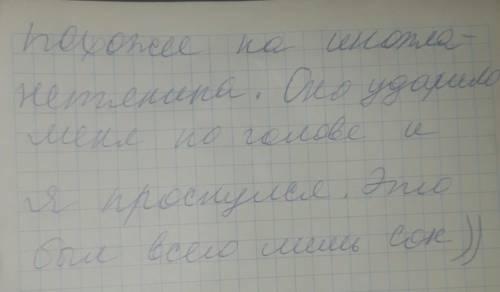 похоже на инопла-
нетянина. Оно ударило
меня по голове и
я проснулся. Это
был всего лишь сон))